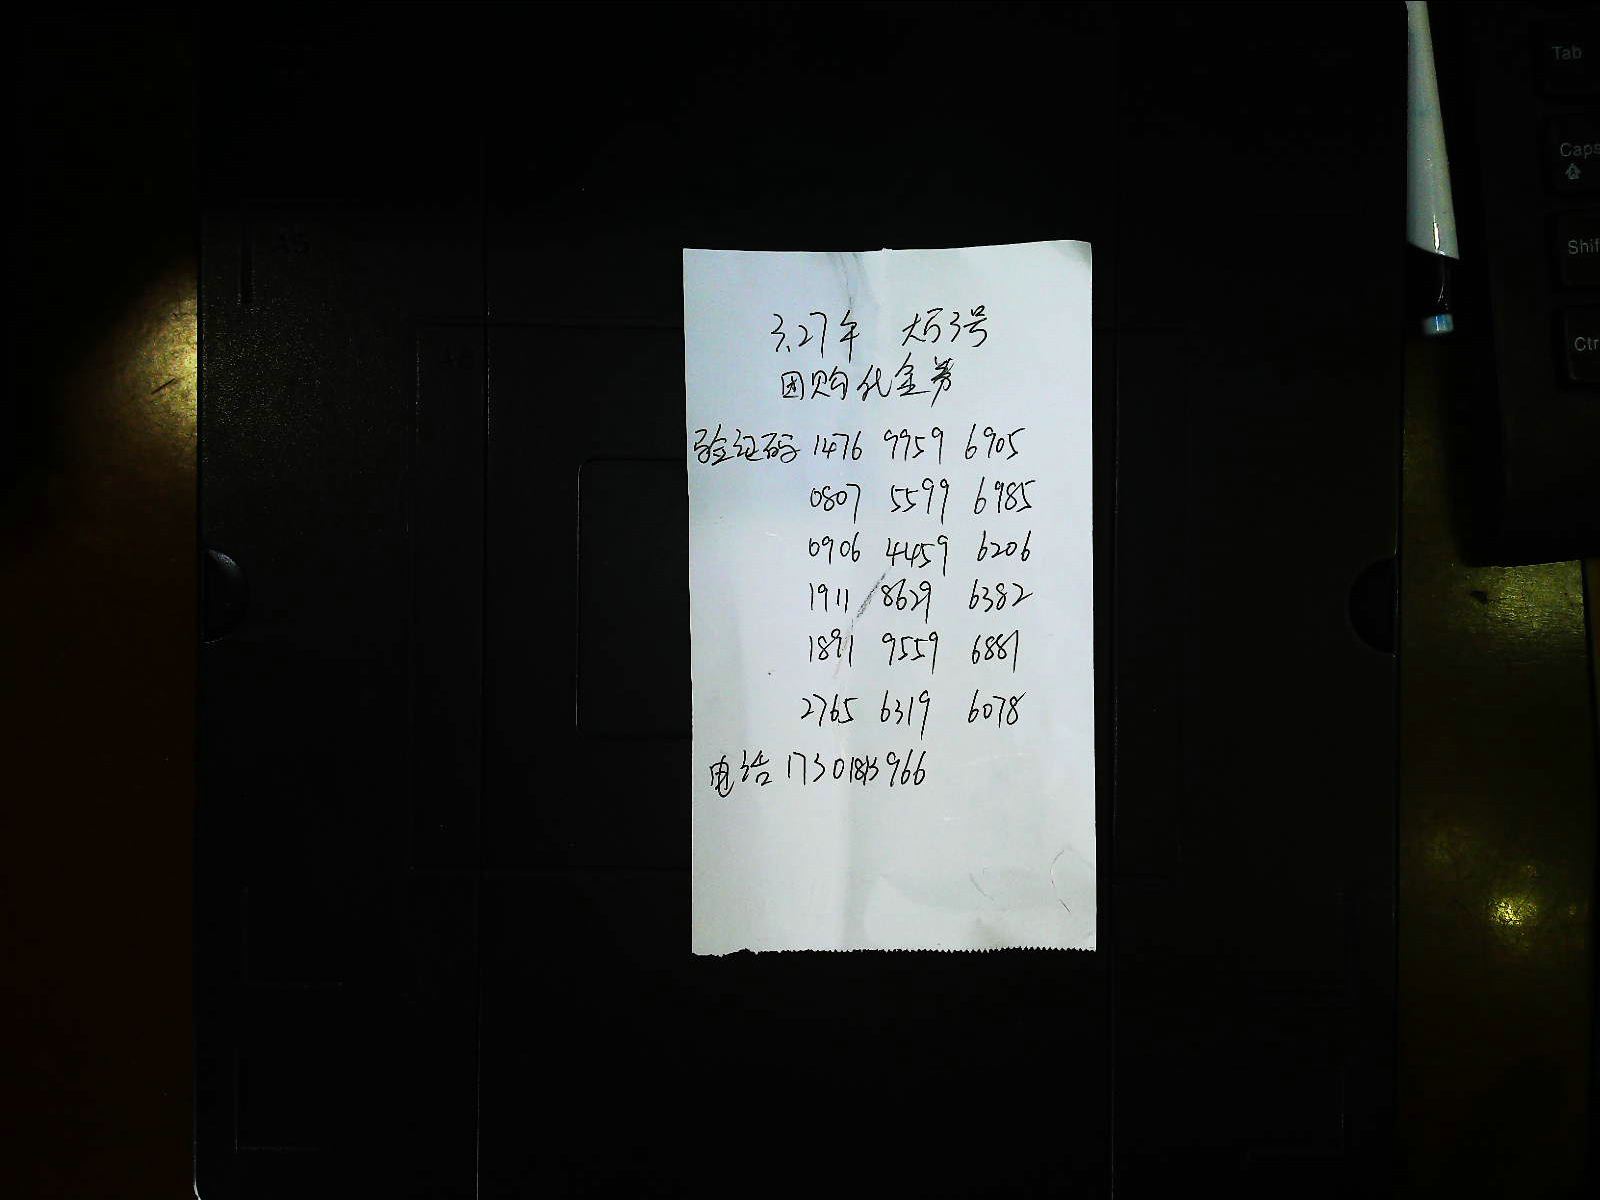 3.27午 大厅3号
团购代金券
验证码 1476 9959 6905
0807 5599 6985
0906 4459 6206
1911 8629 6382
1891 9559 6881
2765 6319 6078
电话 17301813966
Tab
Caps
Shif
Ctr
A5